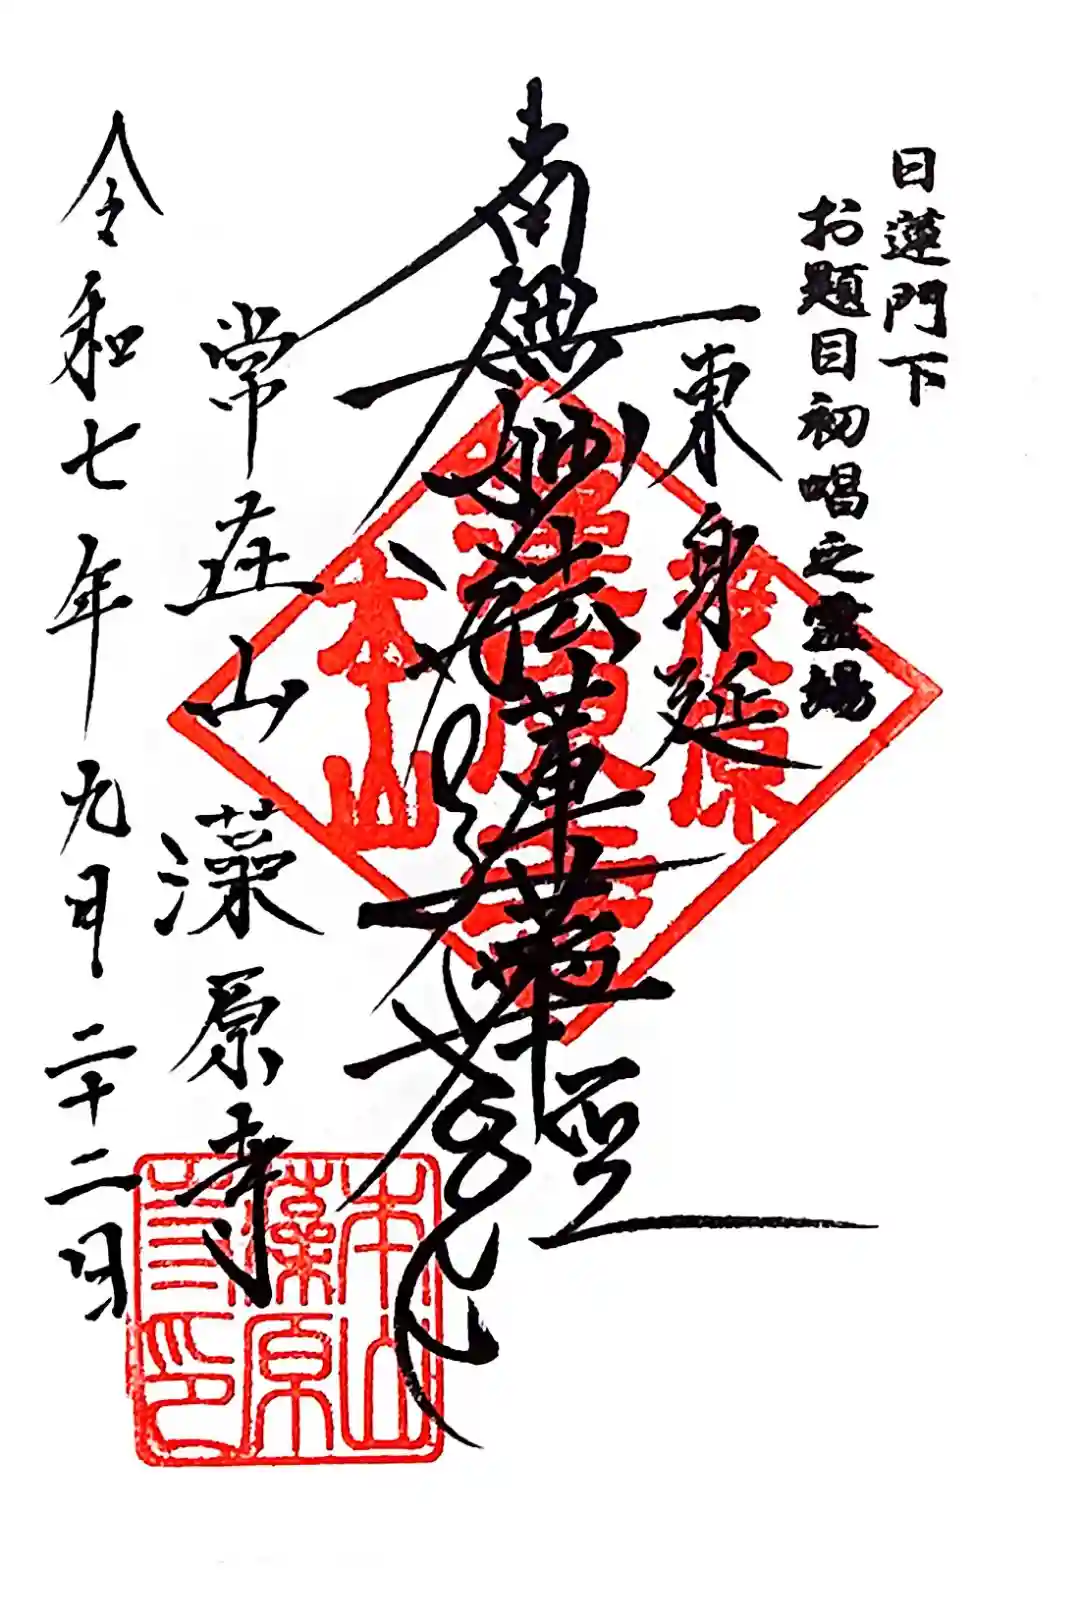 日蓮門下
お題目初唱之霊場
東身延
南無妙法蓮華経
常在山 藻原寺
令和七年九月二十二日
本山
本山
藻原